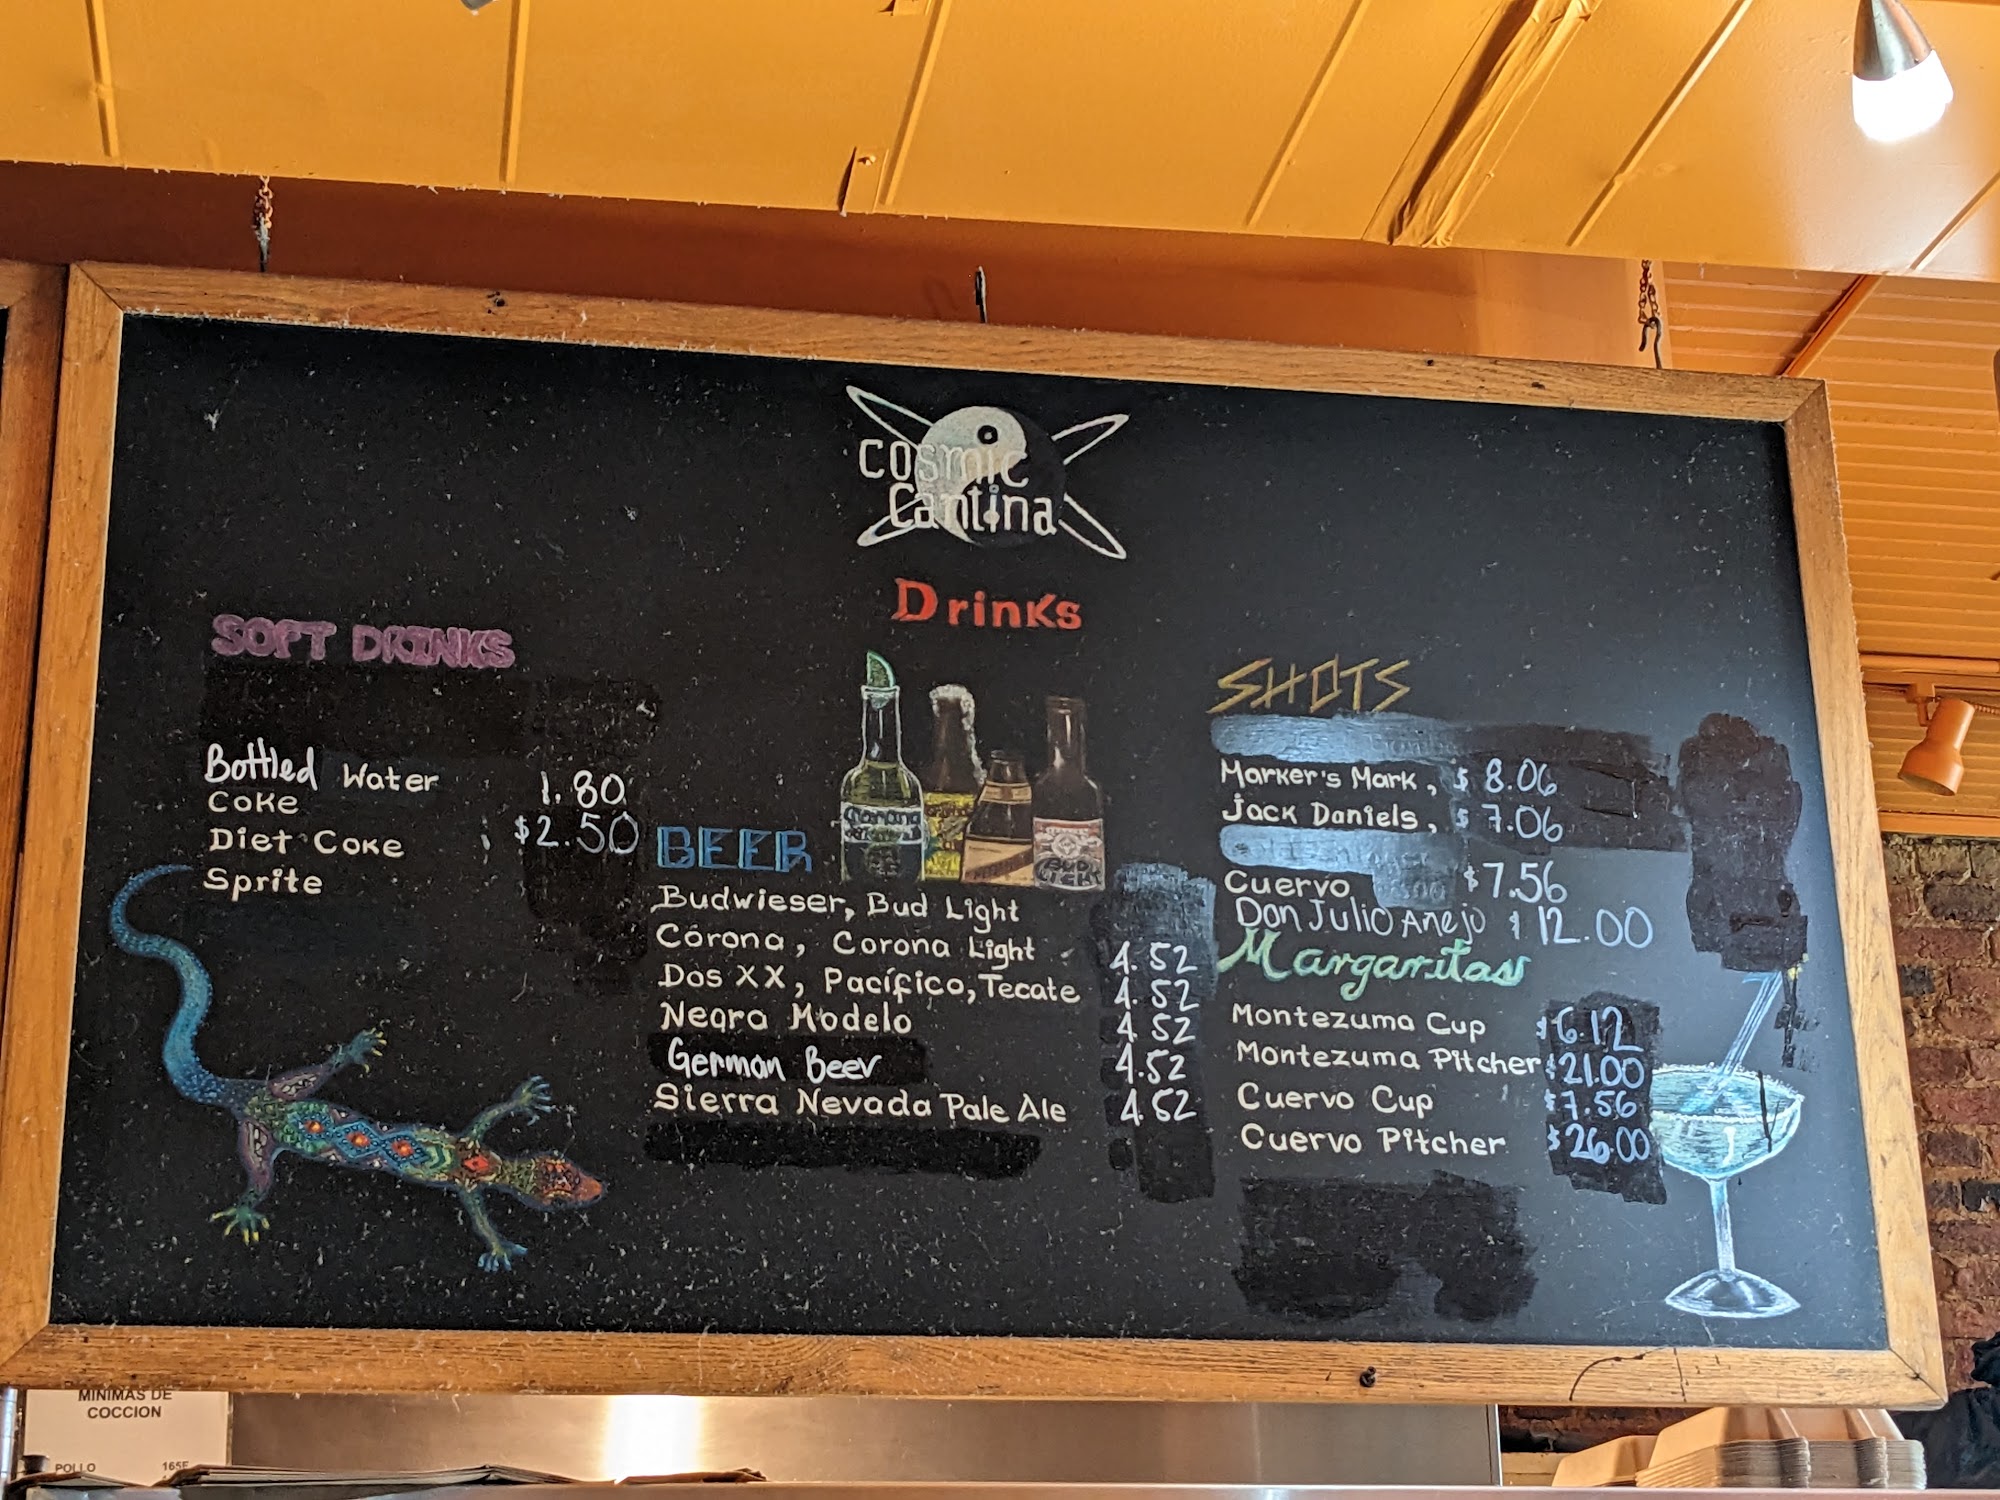 Cosmic
Cantina
Drinks
SOFT DRINKS
Bottled Water 1.80
Coke $2.50
Diet Coke
Sprite
BEER
Budwieser, Bud Light
Corona, Corona Light 4.52
Dos XX, Pacífico, Tecate 4.52
Negra Modelo 4.52
German Beer 4.52
Sierra Nevada Pale Ale 4.52
Corona
SHOTS
Marker's Mark, $ 8.06
Jack Daniels, $ 7.06
Cuervo $7.56
Don Julio Anejo $12.00
Margaritas
Montezuma Cup $6.12
Montezuma Pitcher $21.00
Cuervo Cup $7.56
Cuervo Pitcher $26.00
MINIMAS DE
COCCION
POLLO 165F